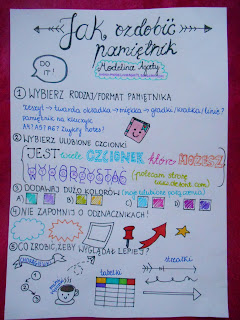 Jak ozdobić
pamiętnik
DO IT!
Modelina Agaty
① WYBIERZ RODZAJ/FORMAT PAMIĘTNIKA
zeszyt → twarda okładka → miękka → gładki/kratka/linie?
pamiętnik na kluczyk
A4? A5? A6? Zwykły notes?
② WYBIERZ ULUBIONE CZCIONKI
JEST wiele CZCIONEK, które MOŻESZ
WYKORZYSTAĆ (polecam stronę
③ DODAWAJ DUŻO KOLORÓW! (moje ulubione połączenia)
A) B) C) D)
④ NIE ZAPOMNIJ O ODZNACZNIKACH!
⑤ CO ZROBIĆ, ŻEBY WYGLĄDAŁ LEPIEJ?
tabelki
strzałki
① ② ③